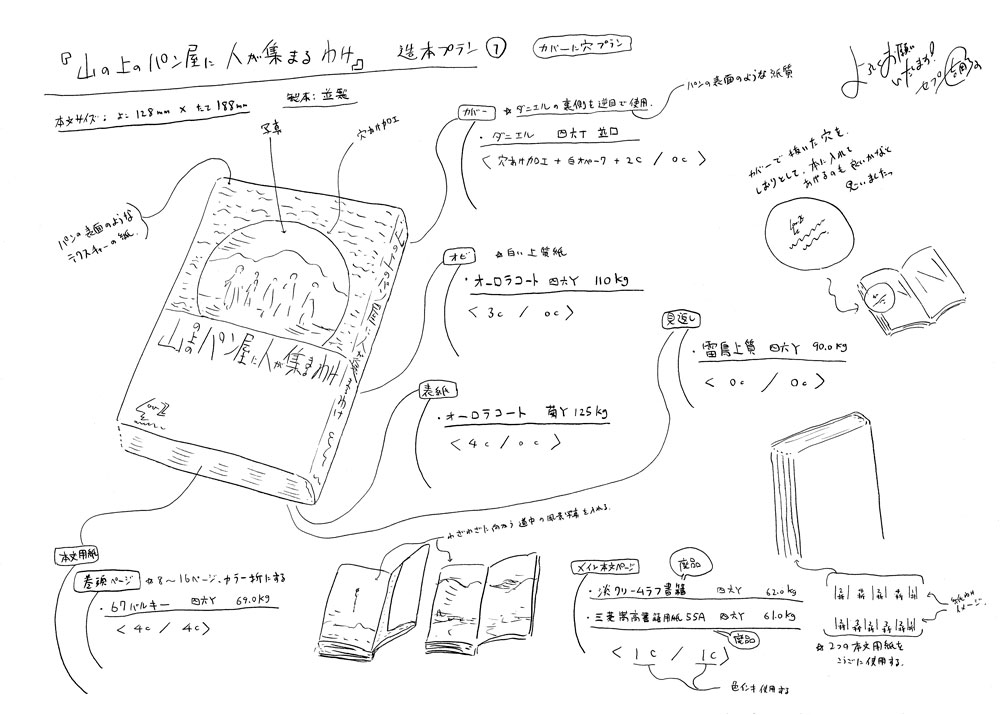 『山の上のパン屋に人が集まるわけ』 造本プラン①
カバーに穴プラン
よろしくお願い
いたします!
セプ
本文サイズ: よこ128mm × たて188mm
製本:並製
写真
穴あけ加工
パンの表面のような
テクスチャーの紙
カバー
☆ダニエルの裏側を逆目で使用.
パンの表面のような紙質
・ダニエル 四六T 並口
〈穴あけ加工 + 白オペーク + 2c / 0c〉
カバーで抜いた穴を、
しおりとして、本に入れて
あげるのも良いかなと
思いましたっ
オビ
☆白い上質紙
・オーロラコート 四六Y 110kg
〈3c / 0c〉
見返し
・雷鳥上質 四六Y 90.0kg
〈0c / 0c〉
表紙
・オーロラコート 菊Y 125kg
〈4c / 0c〉
山の上のパン屋に人が集まるわけ
山の上のパン屋に人が集まるわけ
わざわざに向かう道中の風景写真を入れる.
本文用紙
巻頭ページ
☆8〜16ページ、カラー折にする
・b7バルキー 四六Y 69.0kg
〈4c / 4c〉
メイン本文ページ
廃品
・淡クリームラフ書籍 四六Y 62.0kg
・三菱嵩高書籍用紙55A 四六Y 61.0kg
廃品
〈1c / 1c〉
色インキ使用する
☆2つの本文用紙を
こうごに使用する.
イメージ.